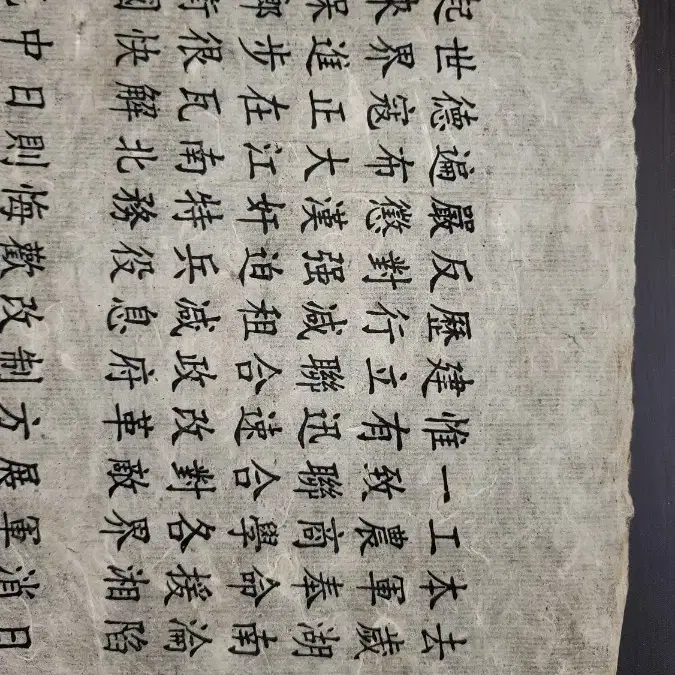 去歲湖南淪陷 日
本軍奉命援湘 消
工農商學各界 軍
一致聯合對敵 展
惟有迅速改革 方
建立聯合政府 制
歷行減租減息 改
反對强迫兵役 歡
嚴懲漢奸特務 悔
遍布大江南北 則
德寇正在瓦解 日
世界進步很快 中
起來保鄉衛國